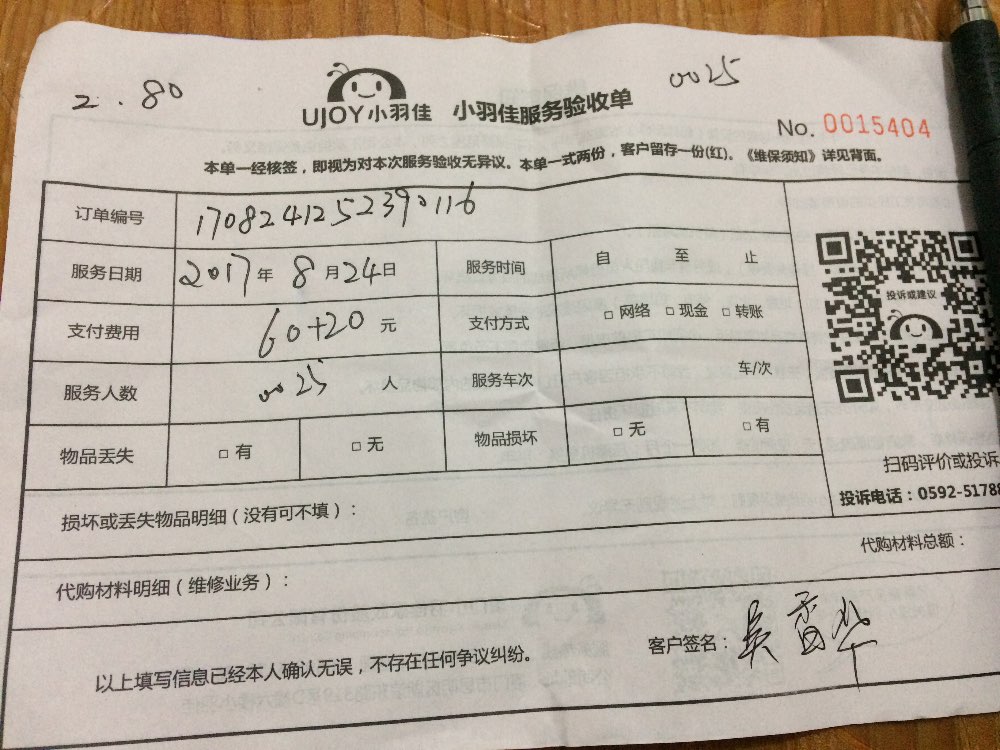 2.80
0025
UJOY小羽佳 小羽佳服务验收单
No. 0015404
本单一经核签，即视为对本次服务验收无异议。本单一式两份，客户留存一份(红)。《维保须知》详见背面。
订单编号 1708241252390116
服务日期 2017年 8月24日 服务时间 自 至 止
支付费用 60+20 元 支付方式 □ 网络 □ 现金 □ 转账
服务人数 0025 人 服务车次 车/次
物品丢失 □ 有 □ 无 物品损坏 □ 无 □ 有
投诉或建议
扫码评价或投诉
投诉电话：0592-51788
损坏或丢失物品明细（没有可不填）：
代购材料明细（维修业务）：
代购材料总额：
以上填写信息已经本人确认无误，不存在任何争议纠纷。
客户签名：吴香华